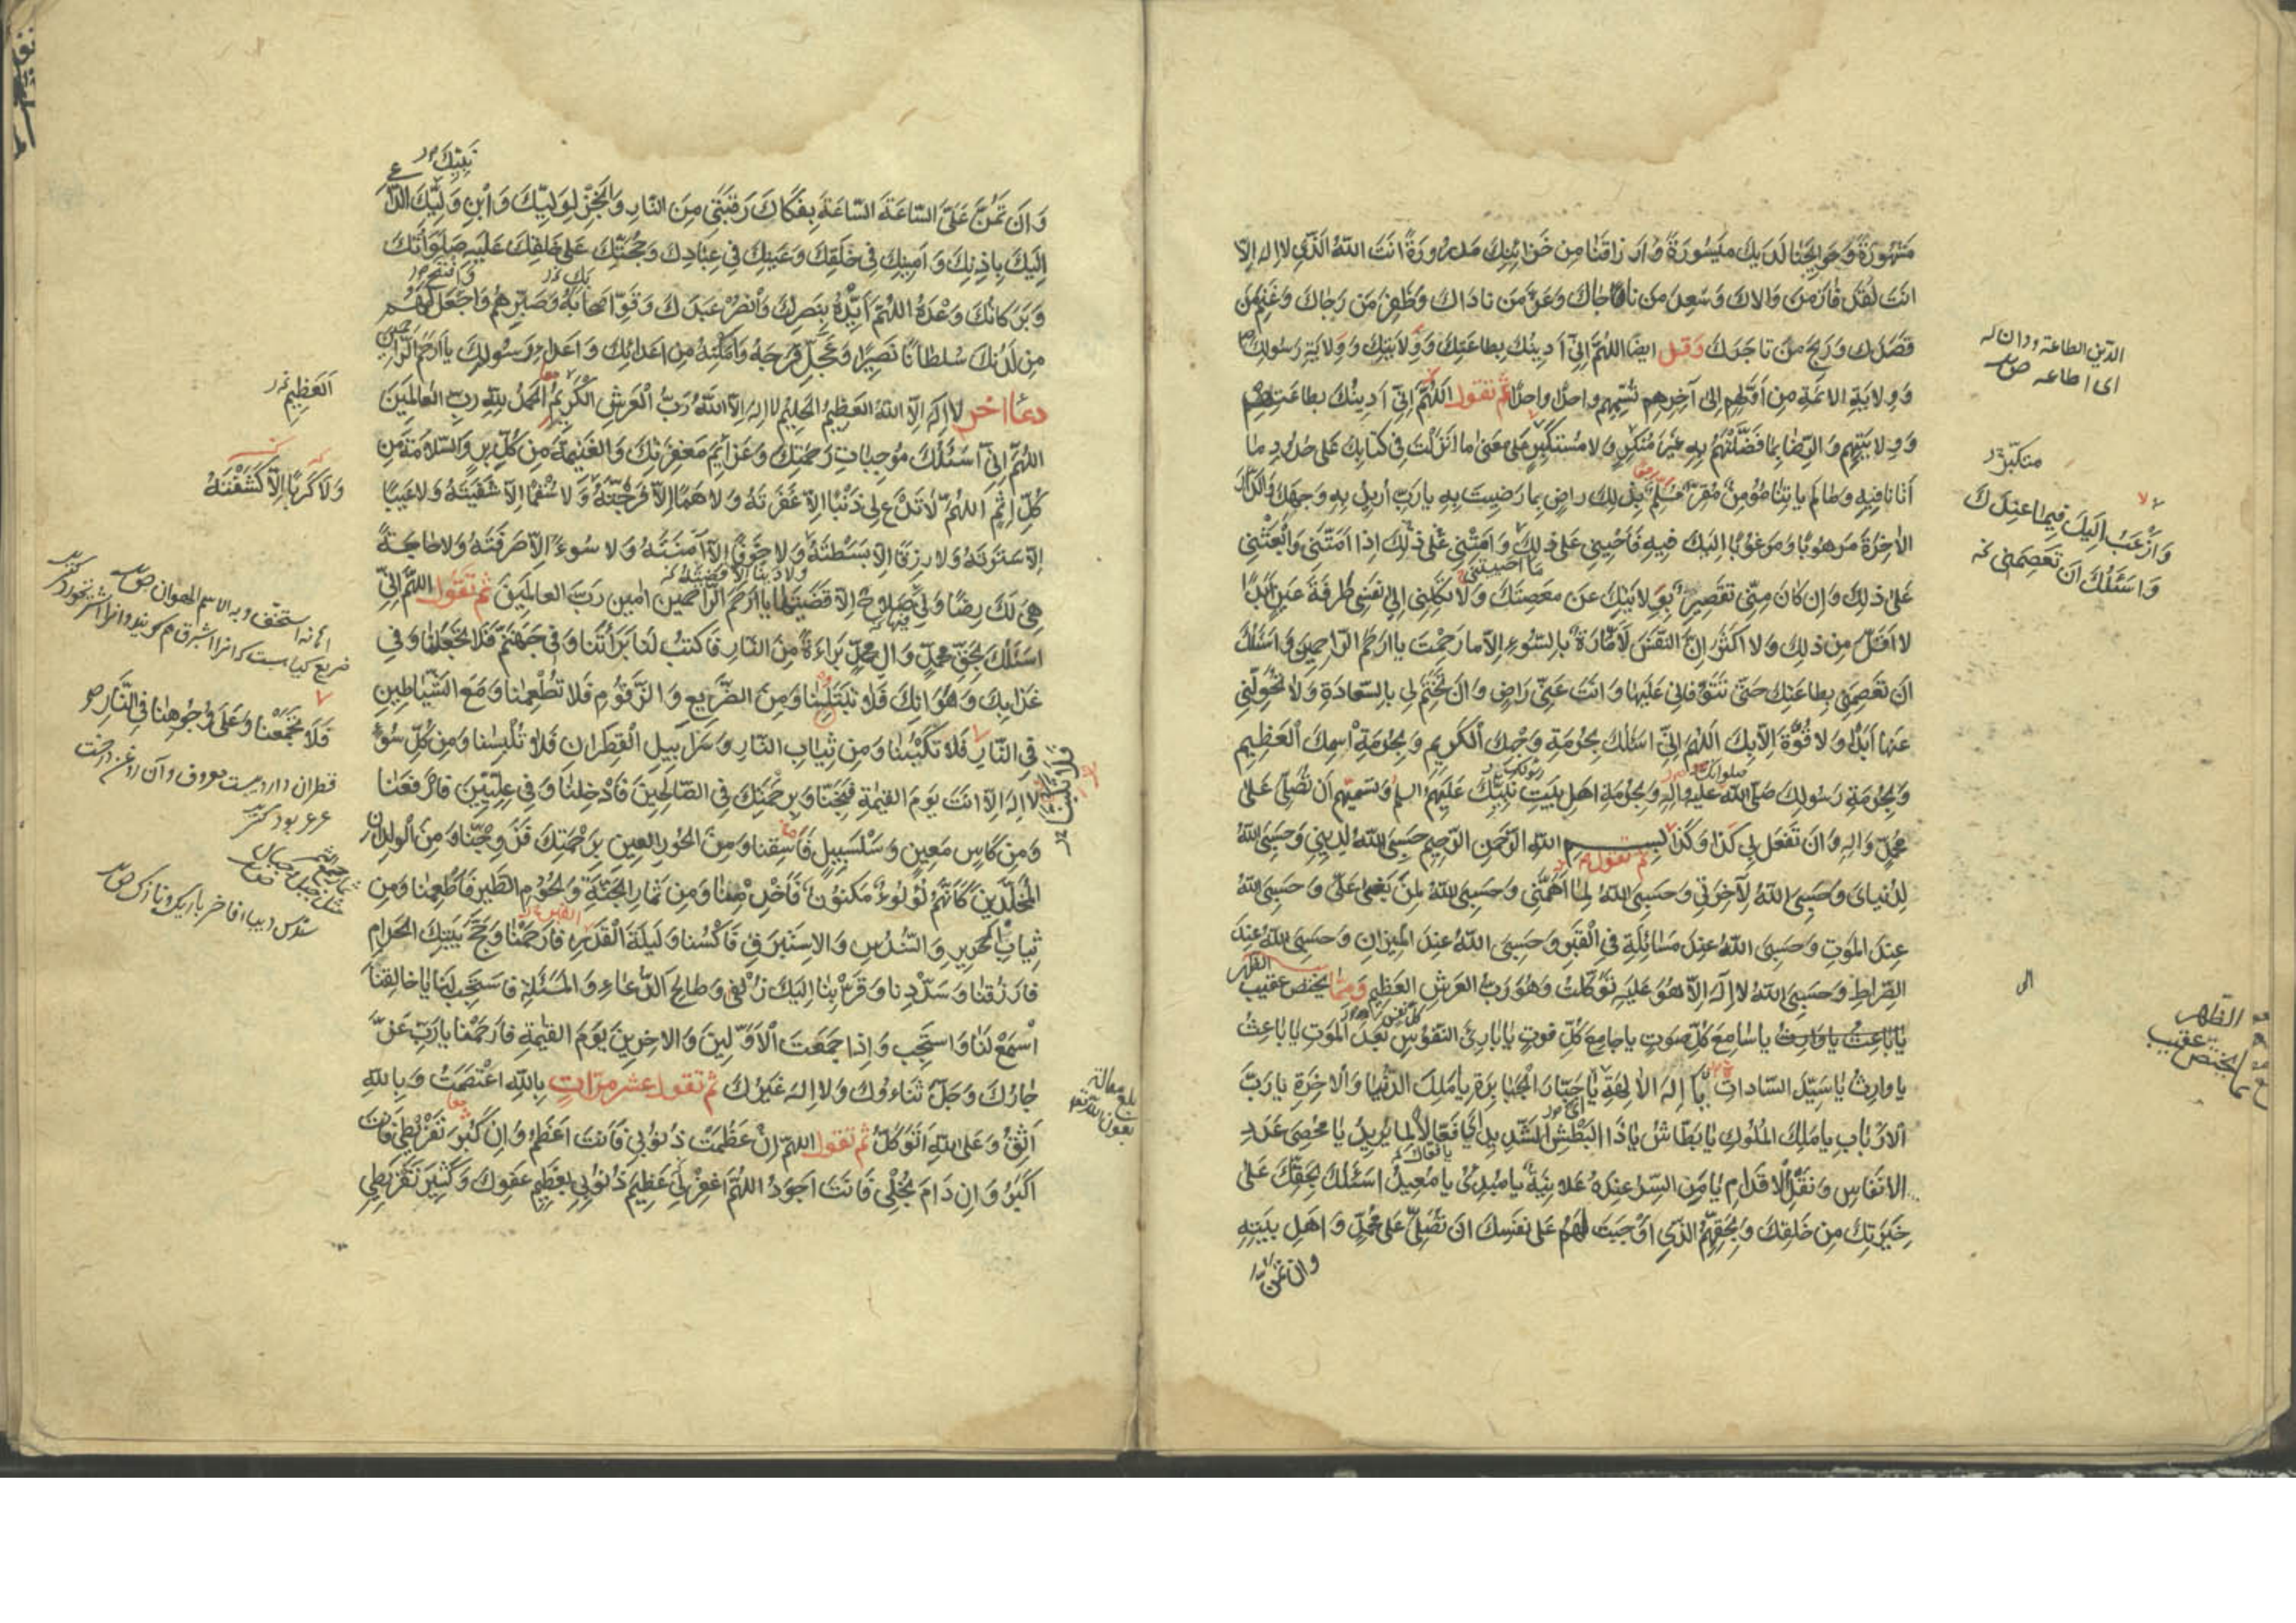 مَشْهُورَةً وَحَوَائِجَنَا لَدَيْكَ مَيْسُورَةً وَأَرْزَاقَنَا مِنْ خَزَائِنِكَ مَدْرُورَةً أَنْتَ اللّٰهُ الَّذِي لَا إِلٰهَ إِلَّا
أَنْتَ لَقَدْ فَازَ مَنْ وَالَاكَ وَسَعِدَ مَنْ نَاجَاكَ وَعَزَّ مَنْ نَادَاكَ وَظَفِرَ مَنْ رَجَاكَ وَغَنِمَ مَنْ
قَصَدَكَ وَرَبِحَ مَنْ تَاجَرَكَ وَقُل أَيْضًا اللّٰهُمَّ إِنِّي أَدِينُكَ بِطَاعَتِكَ وَوِلَايَتِكَ وَوِلَايَةِ رَسُولِكَ
وَوِلَايَةِ الْأَئِمَّةِ مِنْ أَوَّلِهِمْ إِلَى آخِرِهِمْ تُسَمِّيهِمْ وَاحِدًا وَاحِدًا ثُمَّ تَقُولُ اللّٰهُمَّ إِنِّي أَدِينُكَ بِطَاعَتِهِمْ
وَوِلَايَتِهِمْ وَالرِّضَا بِمَا فَضَّلْتَهُمْ بِهِ غَيْرَ مُنْكِرٍ وَلَا مُسْتَكْبِرٍ عَلَى مَعْنَى مَا أَنْزَلْتَ فِي كِتَابِكَ عَلَى حُدُودِ مَا
أَتَانَا فِيهِ وَمَا لَمْ يَأْتِنَا مُؤْمِنٌ مُقِرٌّ مُسَلِّمٌ بِذٰلِكَ رَاضٍ بِمَا رَضِيتَ بِهِ يَا رَبِّ أُرِيدُ بِهِ وَجْهَكَ وَالدَّارَ
الْآخِرَةَ مَرْهُوبًا وَمَرْغُوبًا إِلَيْكَ فِيهِ فَأَحْيِنِي عَلَى ذٰلِكَ وَأَمِتْنِي عَلَى ذٰلِكَ إِذَا أَمَتَّنِي وَابْعَثْنِي
عَلَى ذٰلِكَ وَإِنْ كَانَ مِنِّي تَقْصِيرٌ عَنْ مَعْصِيَتِكَ وَلَا تَكِلْنِي إِلَى نَفْسِي طَرْفَةَ عَيْنٍ أَبَدًا
لَا أَقَلَّ مِنْ ذٰلِكَ وَلَا أَكْثَرَ إِنَّ النَّفْسَ لَأَمَّارَةٌ بِالسُّوءِ إِلَّا مَا رَحِمْتَ يَا أَرْحَمَ الرَّاحِمِينَ وَأَسْئَلُكَ
أَنْ تَعْصِمَنِي بِطَاعَتِكَ حَتَّى تَتَوَفَّانِي عَلَيْهَا وَأَنْتَ عَنِّي رَاضٍ وَأَنْ تَخْتِمَ لِي بِالسَّعَادَةِ وَلَا تُحَوِّلَنِي
عَنْهَا أَبَدًا وَلَا قُوَّةَ إِلَّا بِكَ اللّٰهُمَّ إِنِّي أَسْئَلُكَ بِحُرْمَةِ وَجْهِكَ الْكَرِيمِ وَبِحُرْمَةِ اسْمِكَ الْعَظِيمِ
وَبِحُرْمَةِ رَسُولِكَ صَلَّى اللّٰهُ عَلَيْهِ وَآلِهِ وَبِحُرْمَةِ أَهْلِ بَيْتِ نَبِيِّكَ عَلَيْهِمُ السلم وَتُسَمِّيهِمْ أَنْ تُصَلِّيَ عَلَى
مُحَمَّدٍ وَآلِهِ وَأَنْ تَفْعَلَ بِي كَذَا وَكَذَا ثم تقول بِسْمِ اللّٰهِ الرَّحْمٰنِ الرَّحِيمِ حَسْبِيَ اللّٰهُ لِدِينِي وَحَسْبِيَ اللّٰهُ
لِدُنْيَايَ وَحَسْبِيَ اللّٰهُ لِآخِرَتِي وَحَسْبِيَ اللّٰهُ لِمَا أَهَمَّنِي وَحَسْبِيَ اللّٰهُ لِمَنْ يَبْغِي عَلَيَّ وَحَسْبِيَ اللّٰهُ
عِنْدَ الْمَوْتِ وَحَسْبِيَ اللّٰهُ عِنْدَ مَسَائِلَةِ فِي الْقَبْرِ وَحَسْبِيَ اللّٰهُ عِنْدَ الْمِيزَانِ وَحَسْبِيَ اللّٰهُ عِنْدَ
الصِّرَاطِ وَحَسْبِيَ اللّٰهُ لَا إِلٰهَ إِلَّا هُوَ عَلَيْهِ تَوَكَّلْتُ وَهُوَ رَبُّ الْعَرْشِ الْعَظِيمِ وَمِمَّا يختص عقيب الظهر
يَا بَاعِثُ يَا وَارِثُ يَا سَامِعَ كُلِّ صَوْتٍ يَا جَامِعَ كُلِّ فَوْتٍ يَا بَارِئَ النُّفُوسِ بَعْدَ الْمَوْتِ يَا بَاعِثُ
يَا وَارِثُ يَا سَيِّدَ السَّادَاتِ يَا إِلٰهَ الْآلِهَةِ يَا جَبَّارَ الْجَبَابِرَةِ يَا مَلِكَ الدُّنْيَا وَالْآخِرَةِ يَا رَبَّ
الْأَرْبَابِ يَا مَلِكَ الْمُلُوكِ يَا بَطَّاشُ يَا ذَا الْبَطْشِ الشَّدِيدِ يَا فَعَّالًا لِمَا يُرِيدُ يَا مُحْصِيَ عَدَدِ
الْأَنْفَاسِ وَنَقْلِ الْأَقْدَامِ يَا مَنِ السِّرُّ عِنْدَهُ عَلَانِيَةٌ يَا مُبْدِئُ يَا مُعِيدُ أَسْئَلُكَ بِحَقِّكَ عَلَى
خِيَرَتِكَ مِنْ خَلْقِكَ وَبِحَقِّهِمُ الَّذِي أَوْجَبْتَ لَهُمْ عَلَى نَفْسِكَ أَنْ تُصَلِّيَ عَلَى مُحَمَّدٍ وَأَهْلِ بَيْتِهِ
وان تمن
الدين الطاعة ودان له
اى اطاعه
متكبر
وَأَرْغَبُ إِلَيْكَ فِيمَا عِنْدَكَ
وَأَسْئَلُكَ أَنْ تَعْصِمَنِي
الظهر
يختص عقيب
نَبِيِّكَ
وَأَنْ تَمُنَّ عَلَيَّ السَّاعَةَ السَّاعَةَ بِفَكَاكِ رَقَبَتِي مِنَ النَّارِ وَأَنْجِزْ لِوَلِيِّكَ وَابْنِ وَلِيِّكَ الدَّاعِي
إِلَيْكَ بِإِذْنِكَ وَأَمِينِكَ فِي خَلْقِكَ وَعَيْنِكَ فِي عِبَادِكَ وَحُجَّتِكَ عَلَى خَلْقِكَ عَلَيْهِ صَلَوَاتُكَ
وَبَرَكَاتُكَ وَعْدَهُ اللّٰهُمَّ أَيِّدْهُ بِنَصْرِكَ وَانْصُرْ عَبْدَكَ وَقَوِّ أَصْحَابَهُ وَصَبِّرْهُمْ وَاجْعَلْ لَهُمْ
مِنْ لَدُنْكَ سُلْطَانًا نَصِيرًا وَعَجِّلْ فَرَجَهُ وَأَمْكِنْهُ مِنْ أَعْدَائِكَ وَأَعْدَاءِ رَسُولِكَ يَا أَرْحَمَ الرَّاحِمِينَ
دعاء آخر لَا إِلٰهَ إِلَّا اللّٰهُ الْعَظِيمُ الْحَلِيمُ لَا إِلٰهَ إِلَّا اللّٰهُ رَبُّ الْعَرْشِ الْكَرِيمِ الْحَمْدُ لِلّٰهِ رَبِّ الْعَالَمِينَ
اللّٰهُمَّ إِنِّي أَسْئَلُكَ مُوجِبَاتِ رَحْمَتِكَ وَعَزَائِمَ مَغْفِرَتِكَ وَالْغَنِيمَةَ مِنْ كُلِّ بِرٍّ وَالسَّلَامَةَ مِنْ
كُلِّ إِثْمٍ اللّٰهُمَّ لَا تَدَعْ لِي ذَنْبًا إِلَّا غَفَرْتَهُ وَلَا هَمًّا إِلَّا فَرَّجْتَهُ وَلَا سُقْمًا إِلَّا شَفَيْتَهُ وَلَا عَيْبًا
إِلَّا سَتَرْتَهُ وَلَا رِزْقًا إِلَّا بَسَطْتَهُ وَلَا خَوْفًا إِلَّا آمَنْتَهُ وَلَا سُوءً إِلَّا صَرَفْتَهُ وَلَا حَاجَةً
هِيَ لَكَ رِضًا وَلِيَ صَلَاحٌ إِلَّا قَضَيْتَهَا يَا أَرْحَمَ الرَّاحِمِينَ آمِينَ رَبَّ الْعَالَمِينَ ثُمَّ تَقُولُ اللّٰهُمَّ إِنِّي
أَسْئَلُكَ بِحَقِّ مُحَمَّدٍ وَآلِ مُحَمَّدٍ بَرَاءَةً مِنَ النَّارِ فَاكْتُبْ لَنَا بَرَاءَتَنَا وَفِي جَهَنَّمَ فَلَا تَجْعَلْنَا وَفِي
عَذَابِكَ وَهَوَانِكَ فَلَا تَبْتَلِنَا وَمِنَ الضَّرِيعِ وَالزَّقُّومِ فَلَا تُطْعِمْنَا وَمَعَ الشَّيَاطِينِ
فِي النَّارِ فَلَا تَكُبَّنَا وَمِنْ ثِيَابِ النَّارِ وَسَرَابِيلِ الْقَطِرَانِ فَلَا تُلْبِسْنَا وَمِنْ كُلِّ سُوءٍ
لَا إِلٰهَ إِلَّا أَنْتَ يَوْمَ الْقِيٰمَةِ فَنَجِّنَا وَبِرَحْمَتِكَ فِي الصَّالِحِينَ فَأَدْخِلْنَا وَفِي عِلِّيِّينَ فَارْفَعْنَا
وَمِنْ كَأْسٍ مَعِينٍ وَسَلْسَبِيلٍ فَاسْقِنَا وَمِنَ الْحُورِ الْعِينِ بِرَحْمَتِكَ فَزَوِّجْنَا وَمِنَ الْوِلْدَانِ
الْمُخَلَّدِينَ كَأَنَّهُمْ لُؤْلُؤٌ مَكْنُونٌ فَأَخْدِمْنَا وَمِنْ ثِمَارِ الْجَنَّةِ وَلُحُومِ الطَّيْرِ فَأَطْعِمْنَا وَمِنْ
ثِيَابِ الْحَرِيرِ وَالسُّنْدُسِ وَالْإِسْتَبْرَقِ فَاكْسُنَا وَلَيْلَةَ الْقَدْرِ فَارْحَمْنَا وَحَجَّ بَيْتِكَ الْحَرَامِ
فَارْزُقْنَا وَسَدِّدْنَا وَقَرِّبْنَا إِلَيْكَ زُلْفَى وَصَالِحَ الدُّعَاءِ وَالْمَسْئَلَةِ فَاسْتَجِبْ لَنَا يَا خَالِقَنَا
اسْمَعْ لَنَا وَاسْتَجِبْ وَإِذَا جَمَعْتَ الْأَوَّلِينَ وَالْآخِرِينَ يَوْمَ الْقِيٰمَةِ فَارْحَمْنَا يَا رَبِّ عَزَّ
جَارُكَ وَجَلَّ ثَنَاءُوكَ وَلَا إِلٰهَ غَيْرُكَ ثم تقول عشر مرات بِاللّٰهِ اعْتَصَمْتُ وَبِاللّٰهِ
أَثِقُ وَعَلَى اللّٰهِ أَتَوَكَّلُ ثم تقول اللّٰهُمَّ إِنْ عَظُمَتْ ذُنُوبِي فَأَنْتَ أَعْظَمُ وَإِنْ كَبُرَ تَفْرِيطِي فَأَنْتَ
أَكْبَرُ وَإِنْ دَامَ بُخْلِي فَأَنْتَ أَجْوَدُ اللّٰهُمَّ اغْفِرْ لِي عَظِيمَ ذُنُوبِي بِعَظِيمِ عَفْوِكَ وَكَثِيرَ تَفْرِيطِي
الْعَظِيمِ
وَلَا كَرْبًا إِلَّا كَشَفْتَهُ
فَلَا تَجْمَعْنَا وَعَلَى وُجُوهِنَا فِي النَّارِ